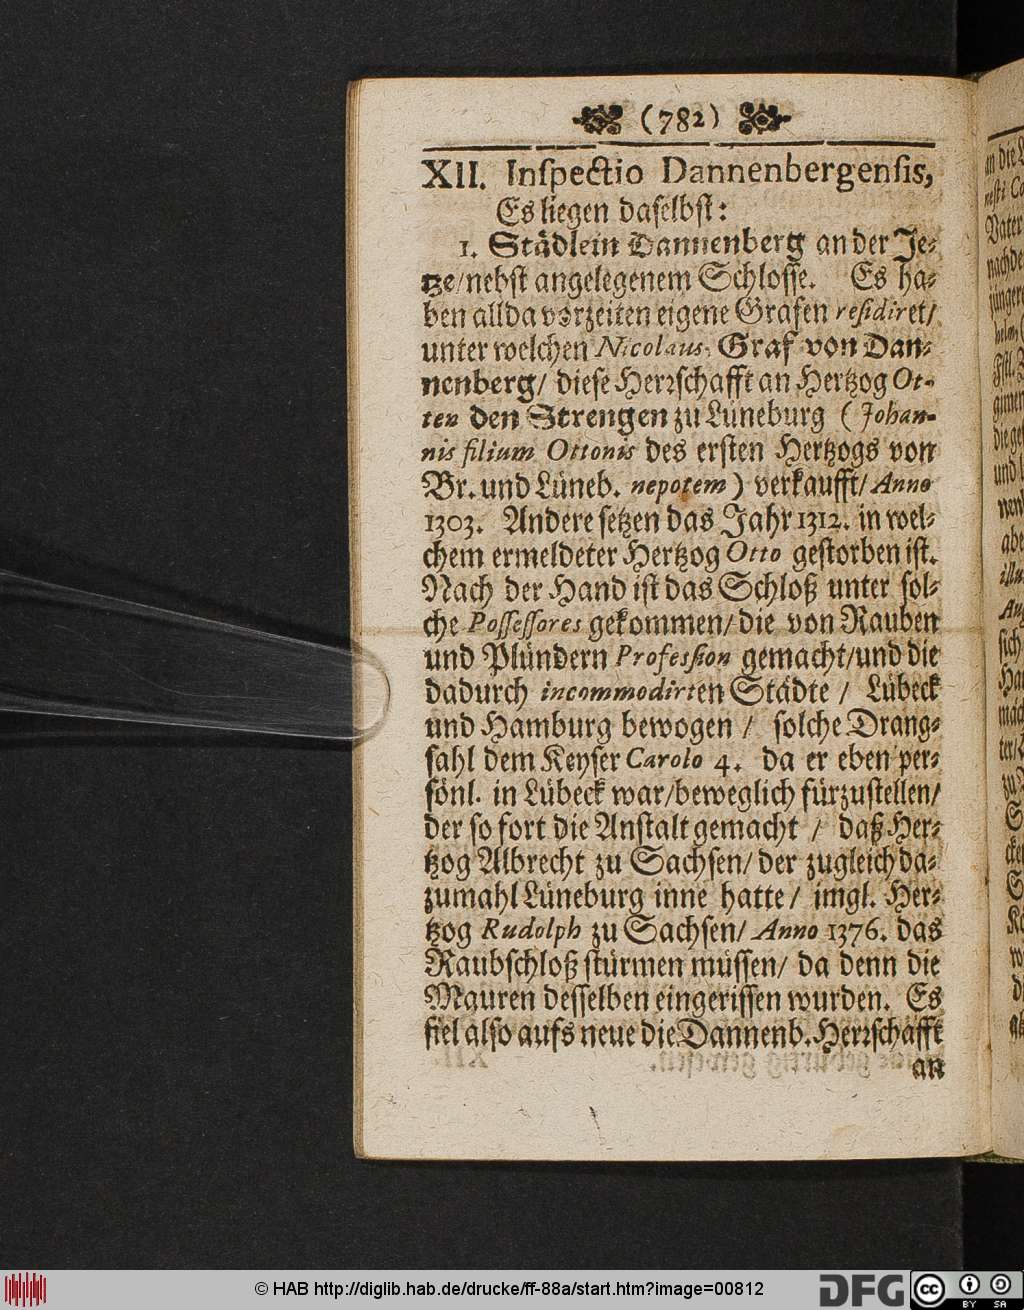 (782)
XII. Inſpectio Dannenbergenſis,
Es liegen daſelbſt:
1. Städlein Dannenberg an der Je-
tze/nebſt angelegenem Schloſſe. Es ha-
ben allda vorzeiten eigene Grafen reſidiret/
unter welchen Nicolaus, Graf von Dan-
nenberg/ dieſe Herrſchafft an Hertzog Ot-
ten den Strengen zu Lüneburg (Johan-
nis filium Ottonis des erſten Hertzogs von
Br. und Lüneb. nepotem) verkaufft/ Anno
1303. Andere ſetzen das Jahr 1312. in wel-
chem ermeldeter Hertzog Otto geſtorben iſt.
Nach der Hand iſt das Schloß unter ſol-
che Poſſeſſores gekommen/ die von Rauben
und Plündern Profeſſion gemacht/und die
dadurch incommodirten Städte / Lübeck
und Hamburg bewogen / ſolche Drang-
ſahl dem Keyſer Carolo 4. da er eben per-
ſönl. in Lübeck war/beweglich fürzuſtellen/
der ſo fort die Anſtalt gemacht / daß Her-
tzog Albrecht zu Sachſen/ der zugleich da-
zumahl Lüneburg inne hatte/ imgl. Her-
tzog Rudolph zu Sachſen/ Anno 1376. das
Raubſchloß ſtürmen müſſen/ da denn die
Mauren deſſelben eingeriſſen wurden. Es
fiel alſo aufs neue die Dannenb. Herrſchafft
an
© HAB http://diglib.hab.de/drucke/ff-88a/start.htm?image=00812
DFG
cc
BY SA